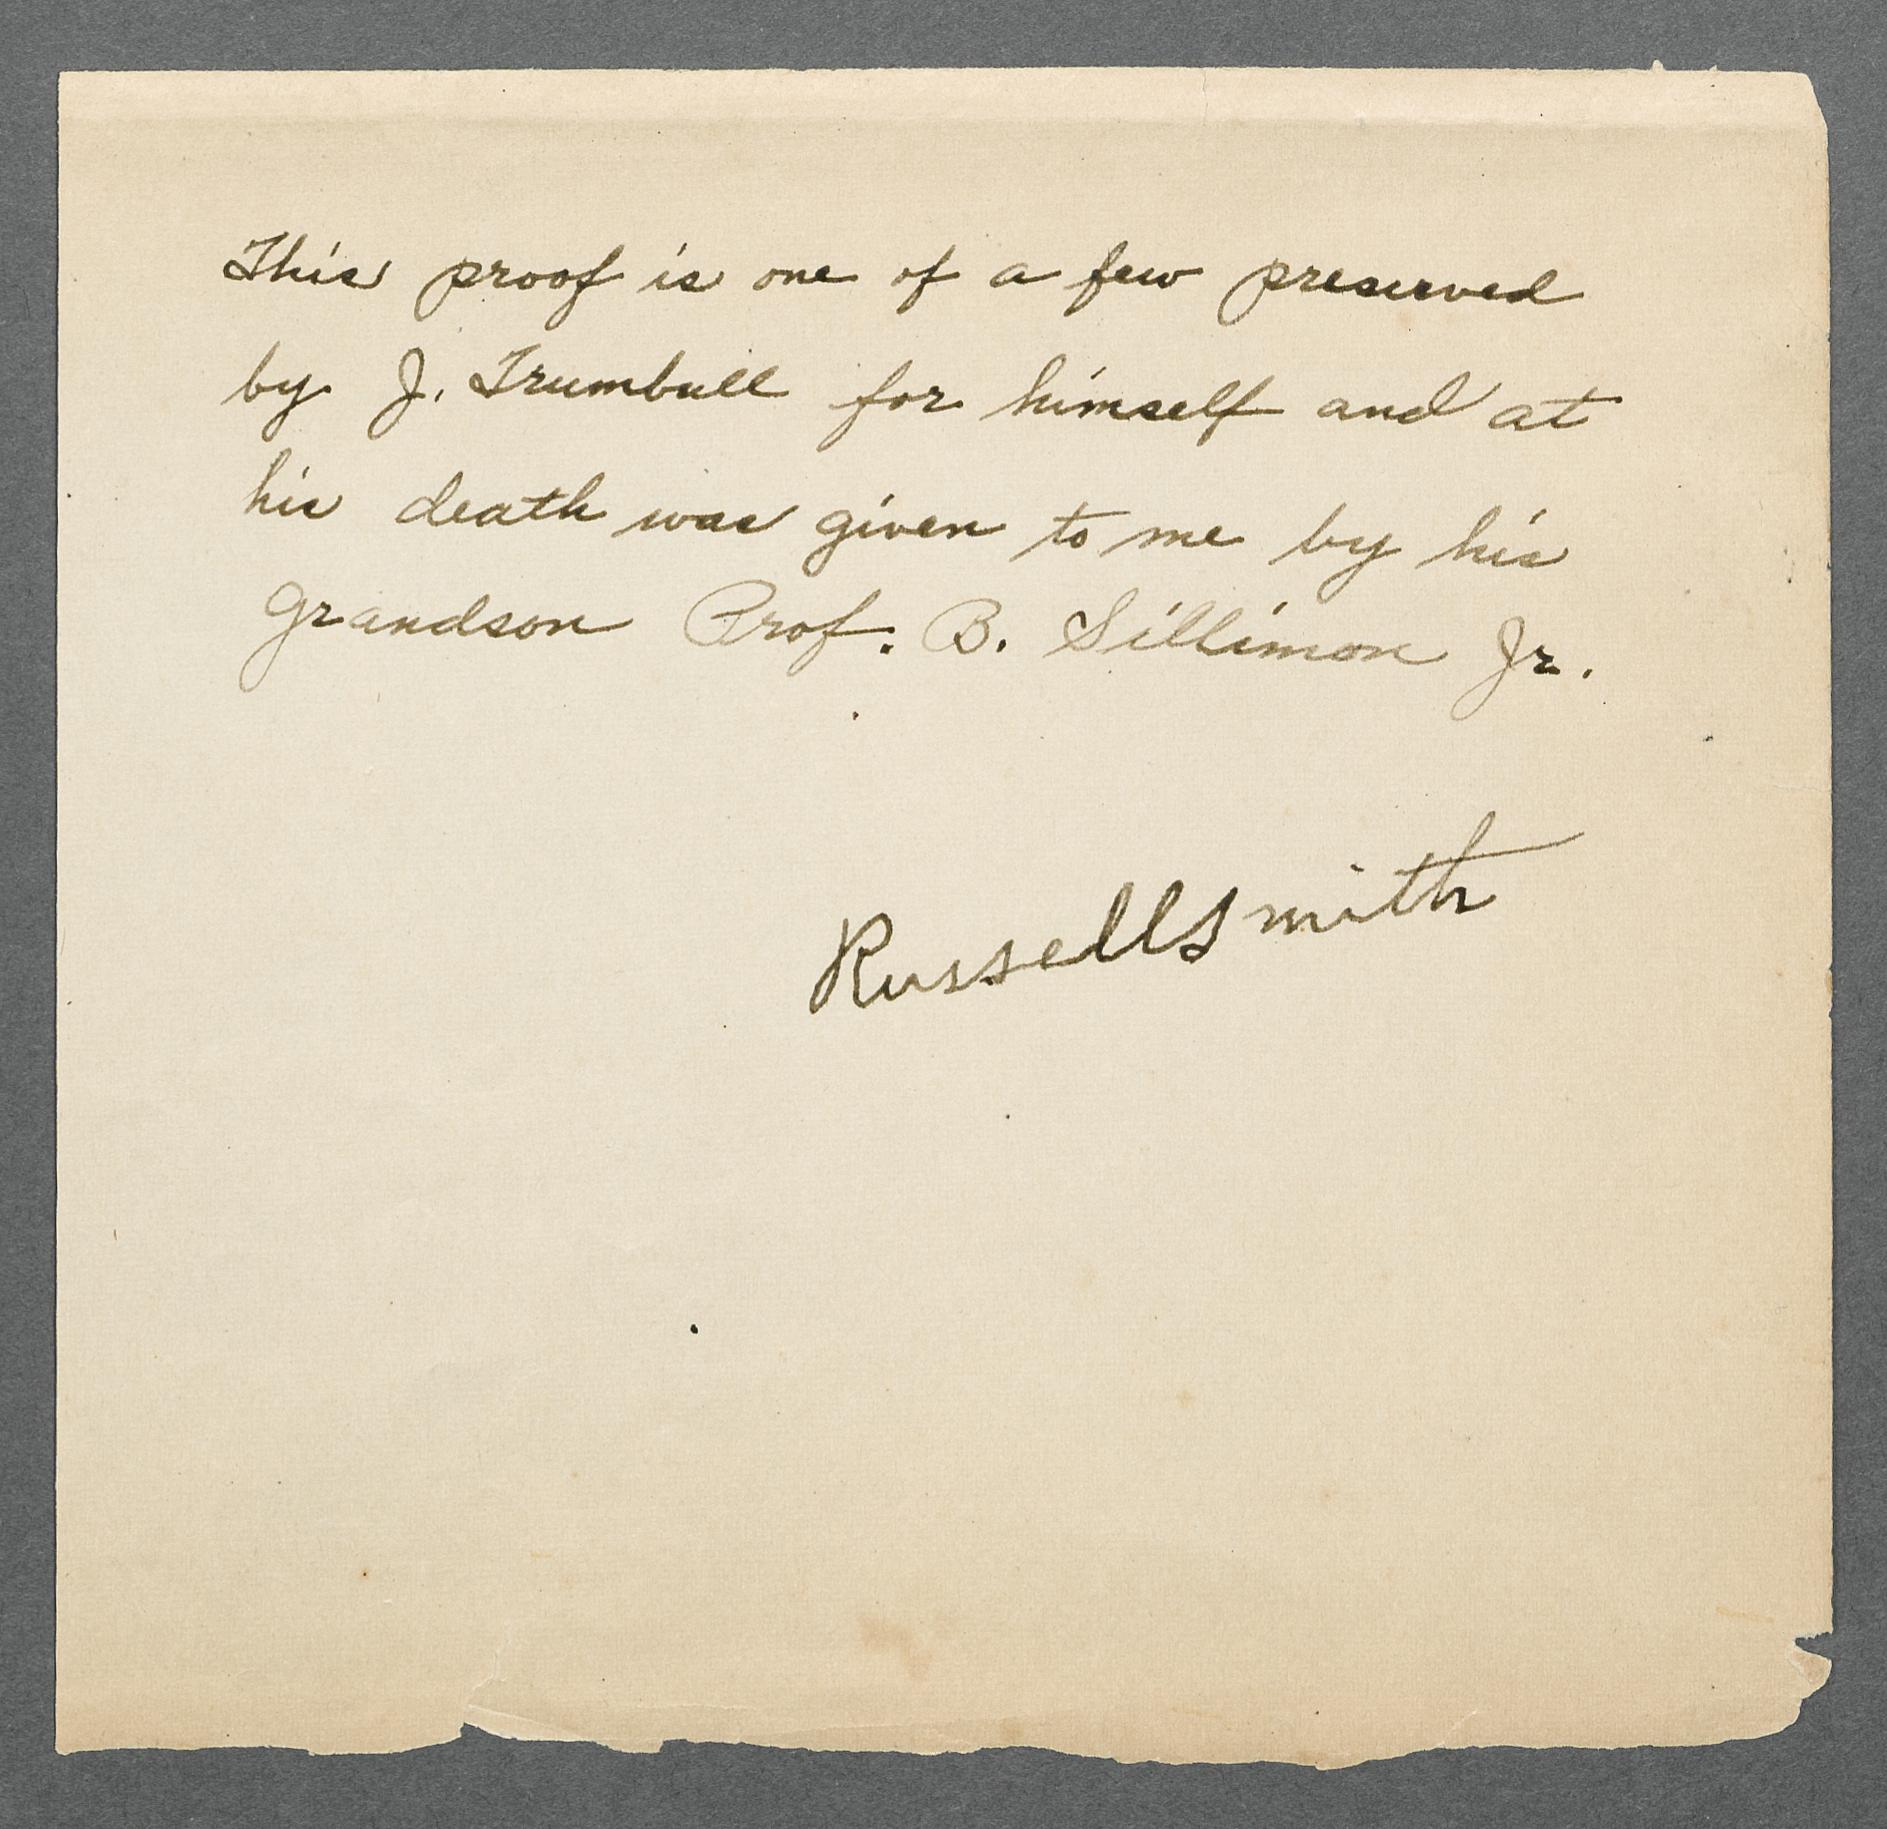 This proof is one of a few preserved
by J. Trumbull for himself and at
his death was given to me by his
grandson Prof. B. Sillimon Jr.
Russellsmith